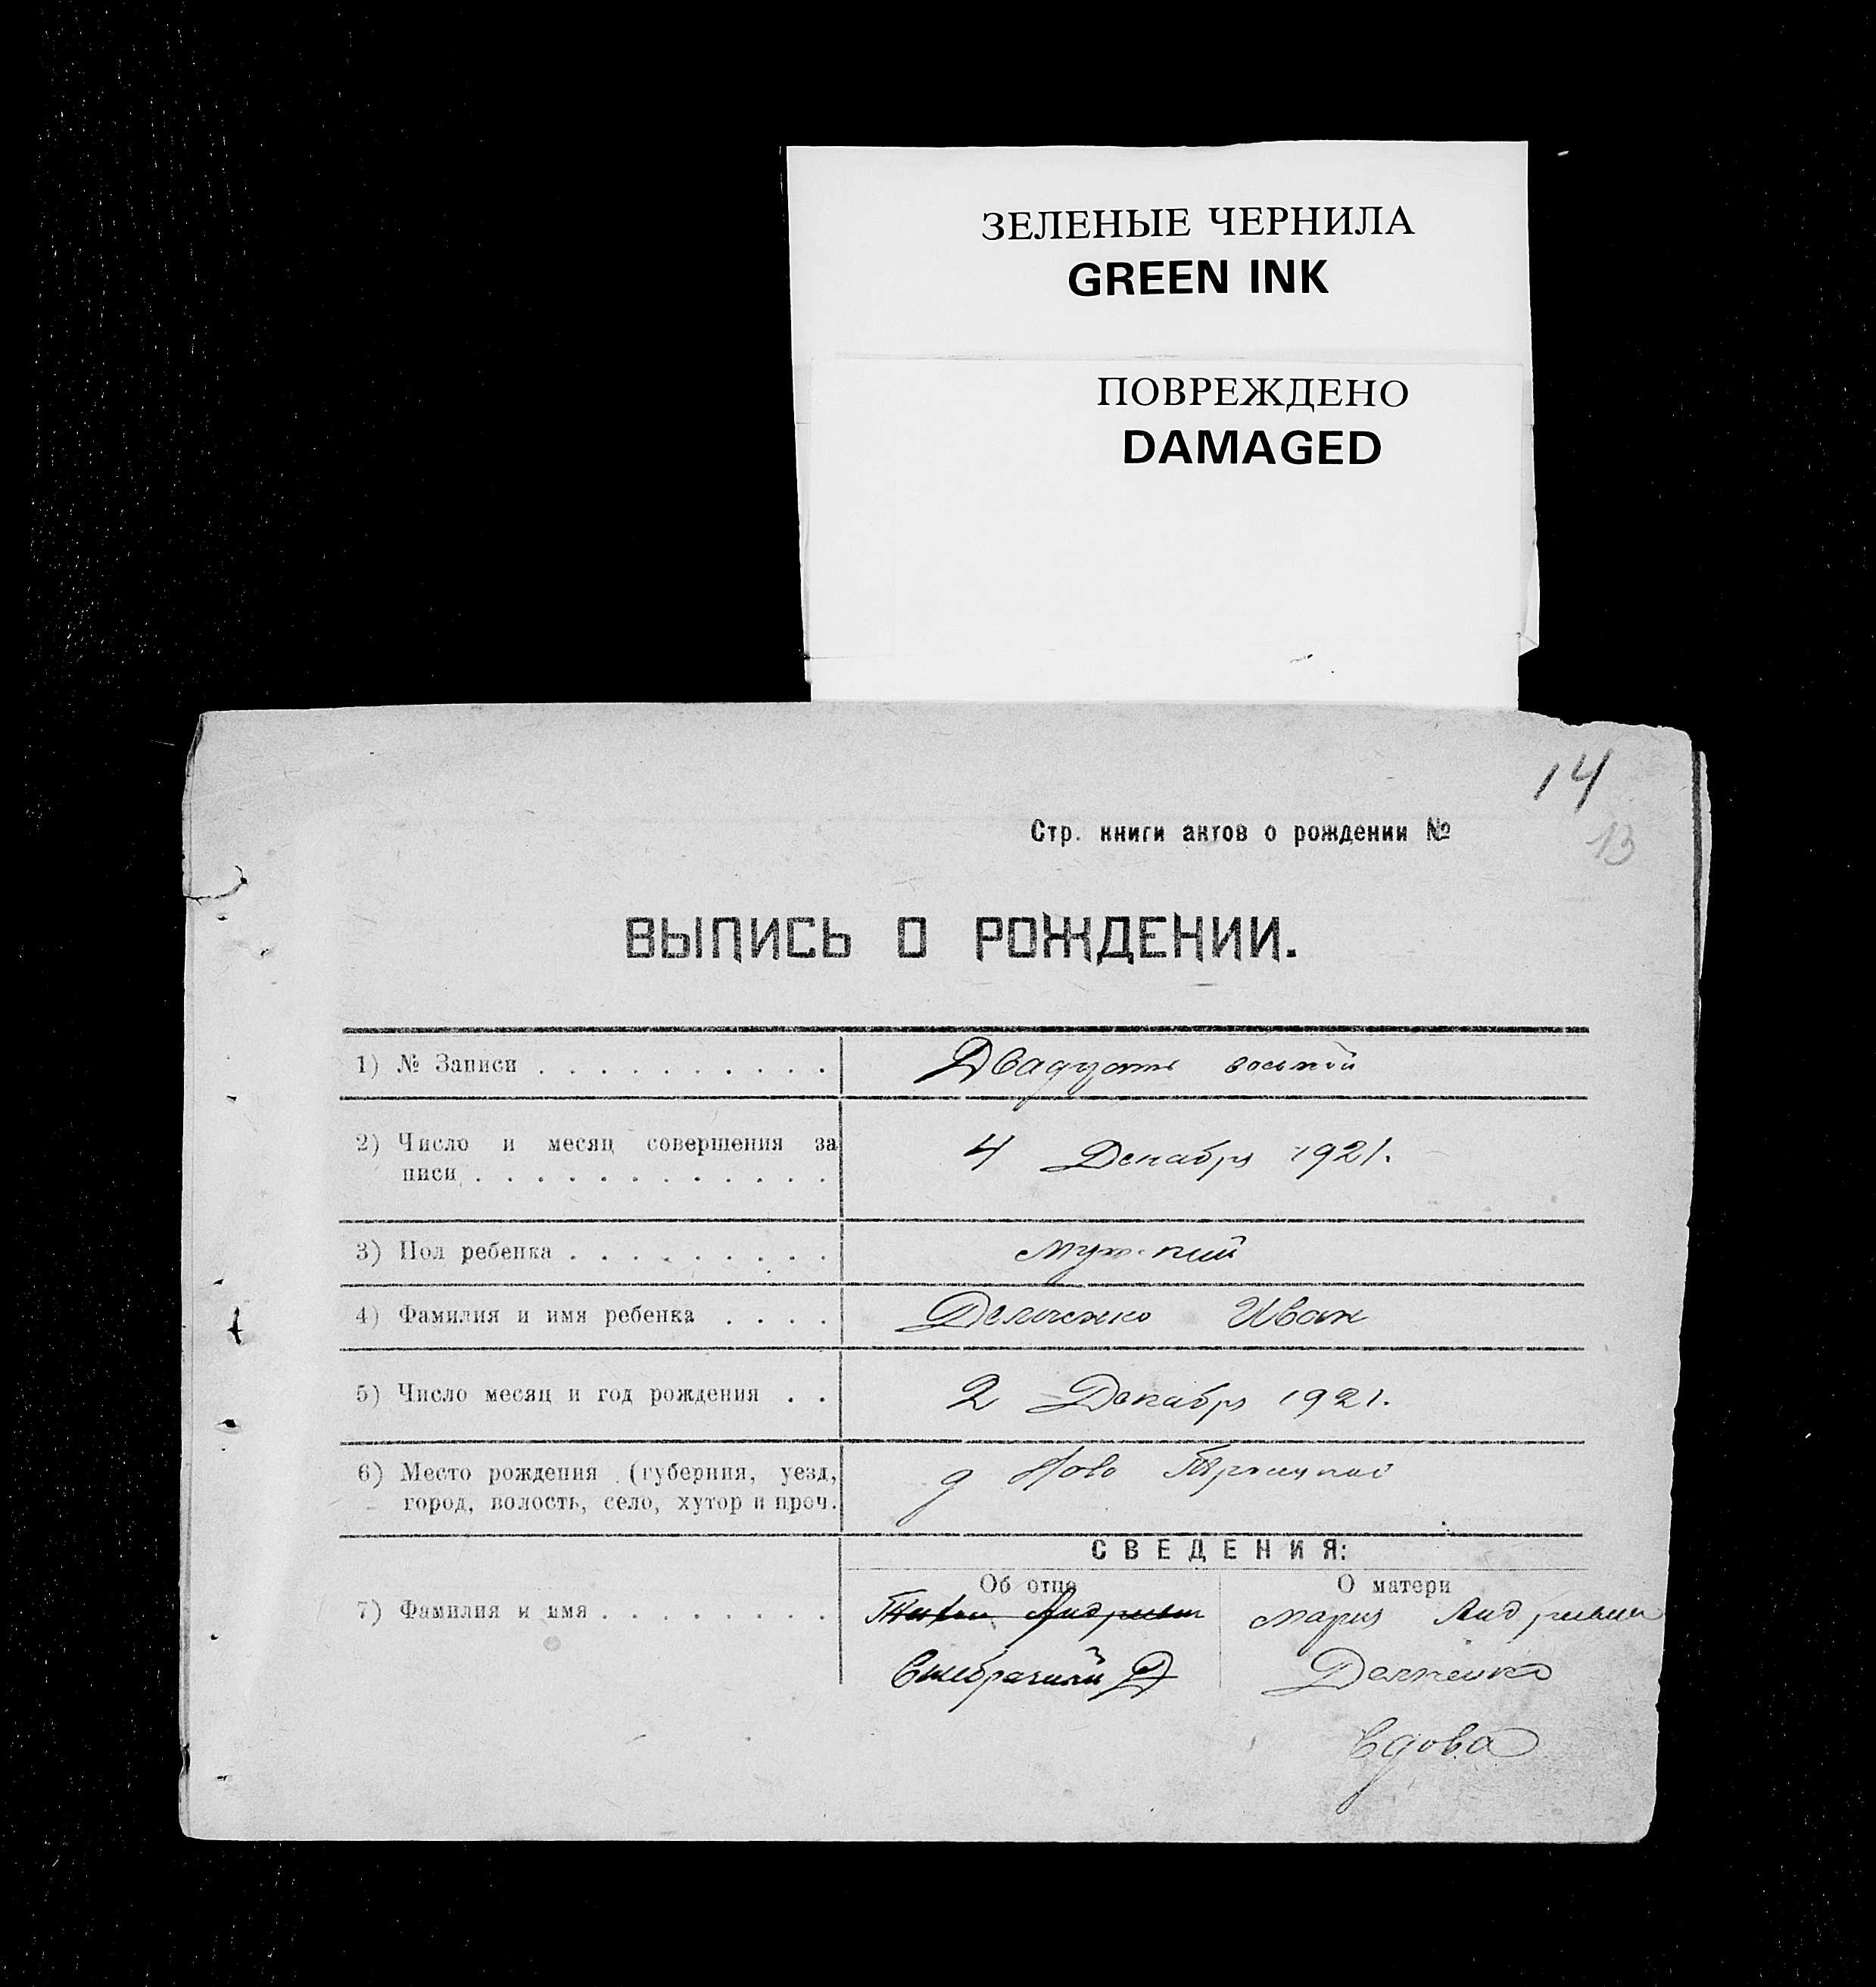 ЗЕЛЕНЫЕ ЧЕРНИЛА
GREEN INK
ПОВРЕЖДЕНО
DAMAGED
14
13
Стр. книги актов о рождении №
ВЫПИСЬ О РОЖДЕНИИ.
1) № Записи . . . . . . . . . . Двадцать восьмой
2) Число и месяц совершения за
писи . . . . . . . . . . . . 4 Декабря 1921.
3) Пол ребенка . . . . . . . . . мужский
4) Фамилия и имя ребенка . . . . Иван
5) Число месяц и год рождения . . 2 Декабря 1921.
6) Место рождения (губерния, уезд,
город, волость, село, хутор и проч. д Ново Троицкой
СВЕДЕНИЯ:
Об отце О матери
7) Фамилия и имя . . . . . . . . Мария
Внебрачный
Вдова